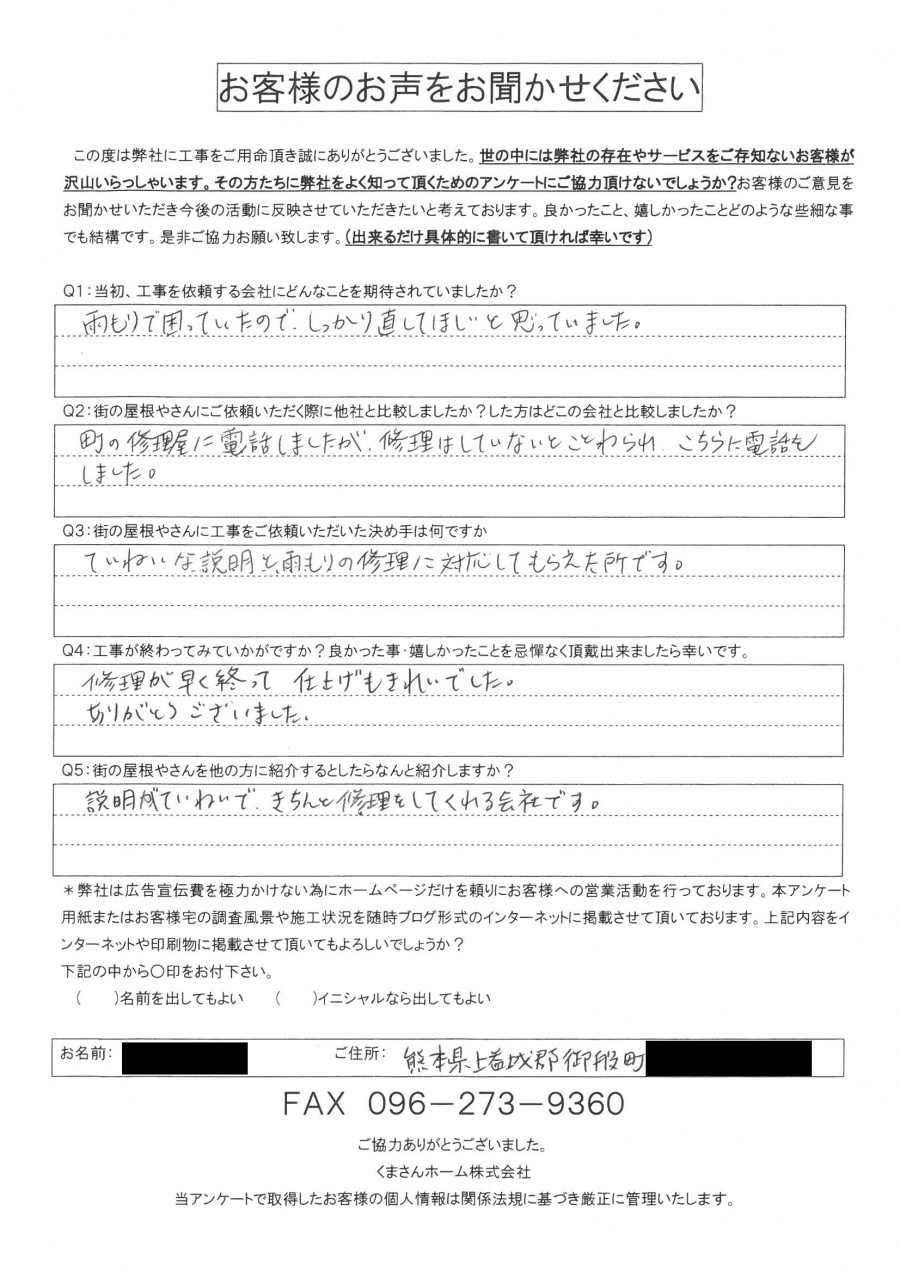 お客様のお声をお聞かせください
この度は弊社に工事をご用命頂き誠にありがとうございました。世の中には弊社の存在やサービスをご存知ないお客様が
沢山いらっしゃいます。その方たちに弊社をよく知って頂くためのアンケートにご協力頂けないでしょうか?お客様のご意見を
お聞かせいただき今後の活動に反映させていただきたいと考えております。良かったこと、嬉しかったことどのような些細な事
でも結構です。是非ご協力お願い致します。(出来るだけ具体的に書いて頂ければ幸いです)
Q1:当初、工事を依頼する会社にどんなことを期待されていましたか?
雨もりで困っていたので、しっかり直してほしいと思っていました。
Q2:街の屋根やさんにご依頼いただく際に他社と比較しましたか?した方はどこの会社と比較しましたか?
町の修理屋に電話しましたが、修理はしていないとことわられ、こちらに電話を
しました。
Q3:街の屋根やさんに工事をご依頼いただいた決め手は何ですか
ていねいな説明と、雨もりの修理に対応してもらえた所です。
Q4:工事が終わってみていかがですか?良かった事・嬉しかったことを忌憚なく頂戴出来ましたら幸いです。
修理が早く終って 仕上げもきれいでした。
ありがとうございました。
Q5:街の屋根やさんを他の方に紹介するとしたらなんと紹介しますか?
説明がていねいで、きちんと修理をしてくれる会社です。
＊弊社は広告宣伝費を極力かけない為にホームページだけを頼りにお客様への営業活動を行っております。本アンケート
用紙またはお客様宅の調査風景や施工状況を随時ブログ形式のインターネットに掲載させて頂いております。上記内容をイ
ンターネットや印刷物に掲載させて頂いてもよろしいでしょうか?
下記の中から〇印をお付下さい。
( )名前を出してもよい ( )イニシャルなら出してもよい
お名前: ご住所: 熊本県上益城郡御船町
FAX 096-273-9360
ご協力ありがとうございました。
くまさんホーム株式会社
当アンケートで取得したお客様の個人情報は関係法規に基づき厳正に管理いたします。